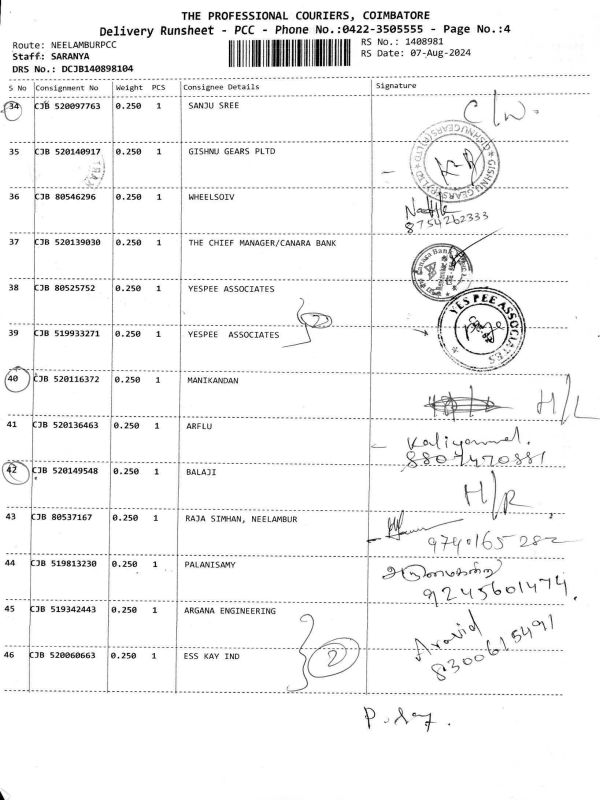 THE PROFESSIONAL COURIERS, COIMBATORE
Delivery Runsheet - PCC - Phone No.:0422-3505555 - Page No.:4
Route: NEELAMBURPCC
RS No.: 1408981
Staff: SARANYA
RS Date: 07-Aug-2024
DRS No.: DCJB140898104
S No Consignment No Weight PCS Consignee Details Signature
34 CJB 520097763 0.250 1 SANJU SREE
35 CJB 520140917 0.250 1 GISHNU GEARS PLTD
GISHNU GEARS (P) LTD
36 CJB 80546296 0.250 1 WHEELSOIV
8754262333
37 CJB 520139030 0.250 1 THE CHIEF MANAGER/CANARA BANK
Canara Bank
38 CJB 80525752 0.250 1 YESPEE ASSOCIATES
2
39 CJB 519933271 0.250 1 YESPEE ASSOCIATES
YES PEE ASSOCIATES
40 CJB 520116372 0.250 1 MANIKANDAN H/L
41 CJB 520136463 0.250 1 ARFLU
8807470881
42 CJB 520149548 0.250 1 BALAJI H/R
43 CJB 80537167 0.250 1 RAJA SIMHAN, NEELAMBUR
44 CJB 519813230 0.250 1 PALANISAMY
9245601474.
45 CJB 519342443 0.250 1 ARGANA ENGINEERING
Aravid
8300615491
46 CJB 520060663 0.250 1 ESS KAY IND
2